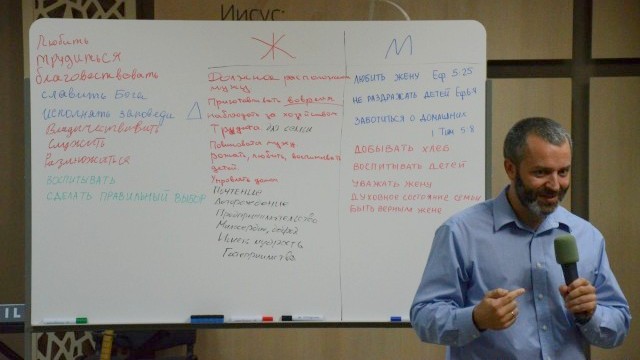 Иисус:
Любить
трудиться
благовествовать
славить Бога
исполнять заповеди
Владычествовать
Служить
Размножаться
воспитывать
сделать правильный выбор
Ж
Должное
мужу
Приготовить
наблюдать за хозяйством
для семьи
мужу
рожать, любить, воспитывать
детей
Управлять домом
Почтение
Деторождение
Предпринимательство
Иметь мудрость
Гостеприимство
М
любить жену Еф 5:25
не раздражать детей Еф 6:4
заботиться о домашних
1 Тим 5:8
добывать хлеб
воспитывать детей
уважать жену
духовное состояние семьи
быть верным жене
IL